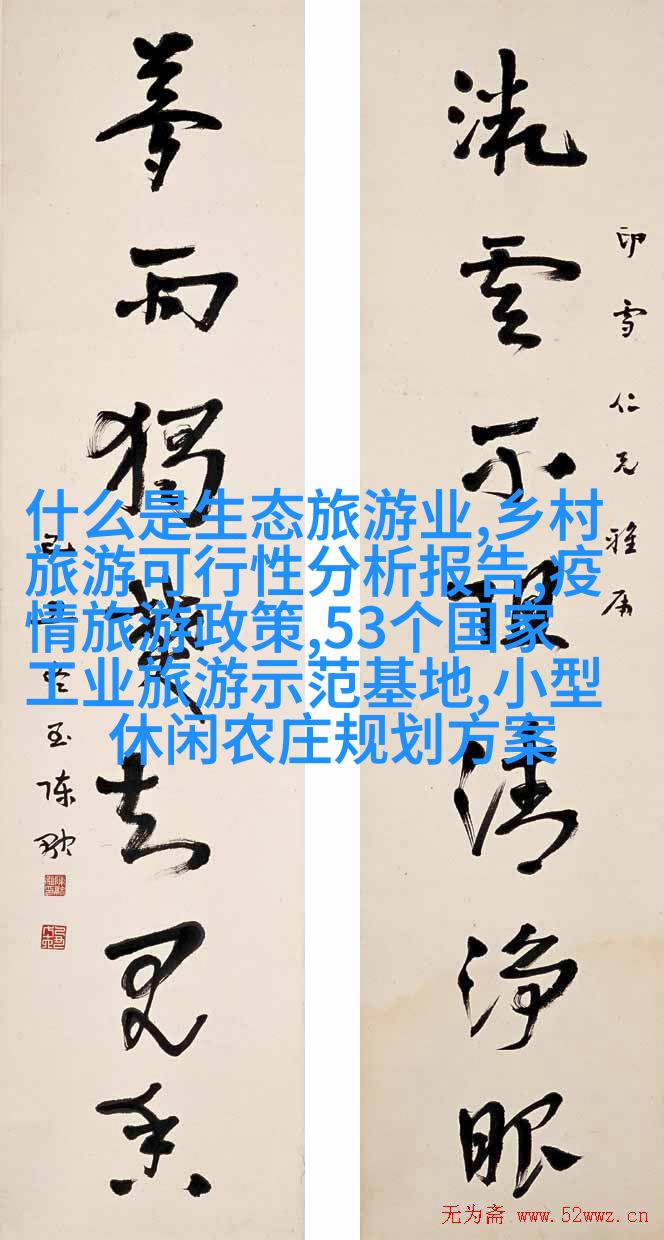 流雲不限清淨眼
印雪仁兄雅属
雨獨知見香
陳融
什么是生态旅游业,乡村
旅游可行性分析报告,疫
情旅游政策,53个国家
工业旅游示范基地,小型
休闲农庄规划方案
无为斋 www.52wwz.cn